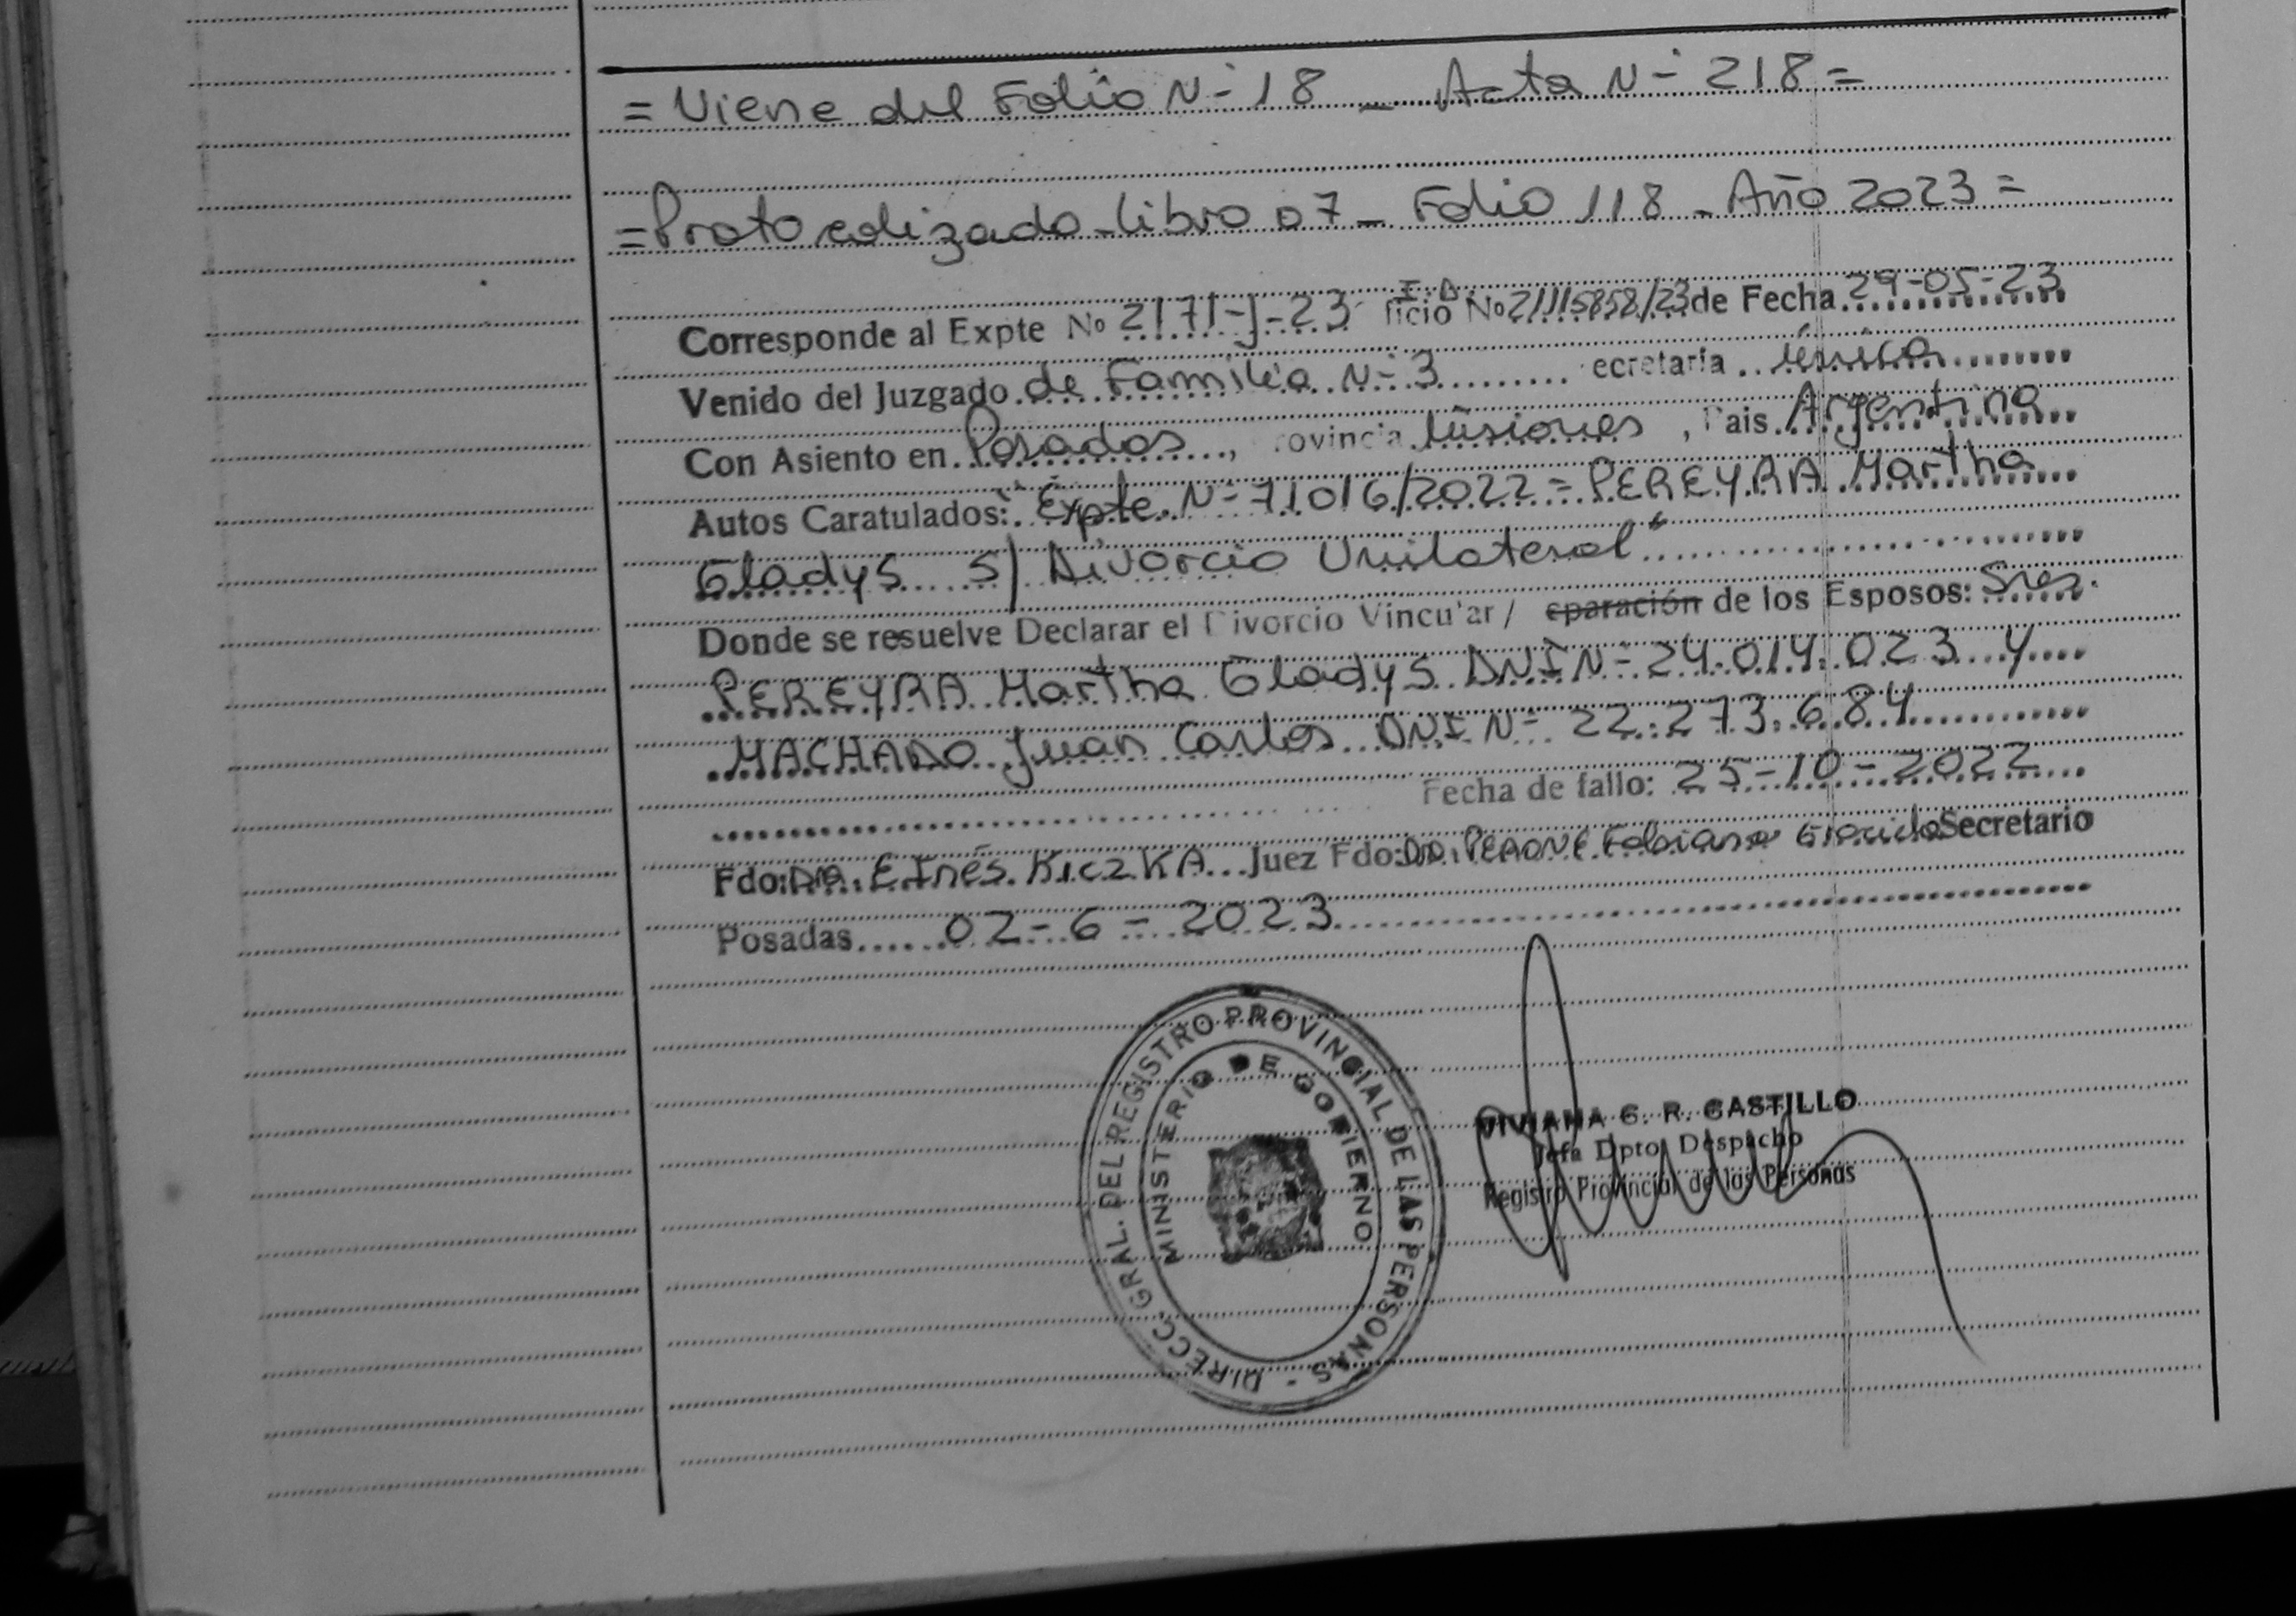 = Viene del Folio N- 18 - Acta N- 218 =
= Protocolizado - libro 07 - Folio 118 - Año 2023 =
Corresponde al Expte No 2171-J-23 I.D ficio No 21115858/23 de Fecha 29-05-23
Venido del Juzgado de Familia N- 3 ecretaria única
Con Asiento en Posadas, rovincia Misiones, Pais Argentina
Autos Caratulados: "Expte. N- 71016/2022 = PEREYRA Martha
Gladys s/ Divorcio Unilateral"
Donde se resuelve Declarar el Divorcio Vincular / eparación de los Esposos: Sres.
PEREYRA Martha Gladys DNI N- 24.014.023 y
MACHADO Juan Carlos DNI N- 22.273.684
Fecha de fallo: 25-10-2022
Fdo: Dra. E Inés KiczKA Juez Fdo: Dra. PERONE Fabiana Graciela Secretario
Posadas 02-6-2023
DIRECC. GRAL. DEL REGISTRO PROVINCIAL DE LAS PERSONAS -
MINISTERIO DE GOBIERNO
VIVIANA G. R. CASTILLO
Jefa Dpto Despacho
Registro Provincial de las Personas